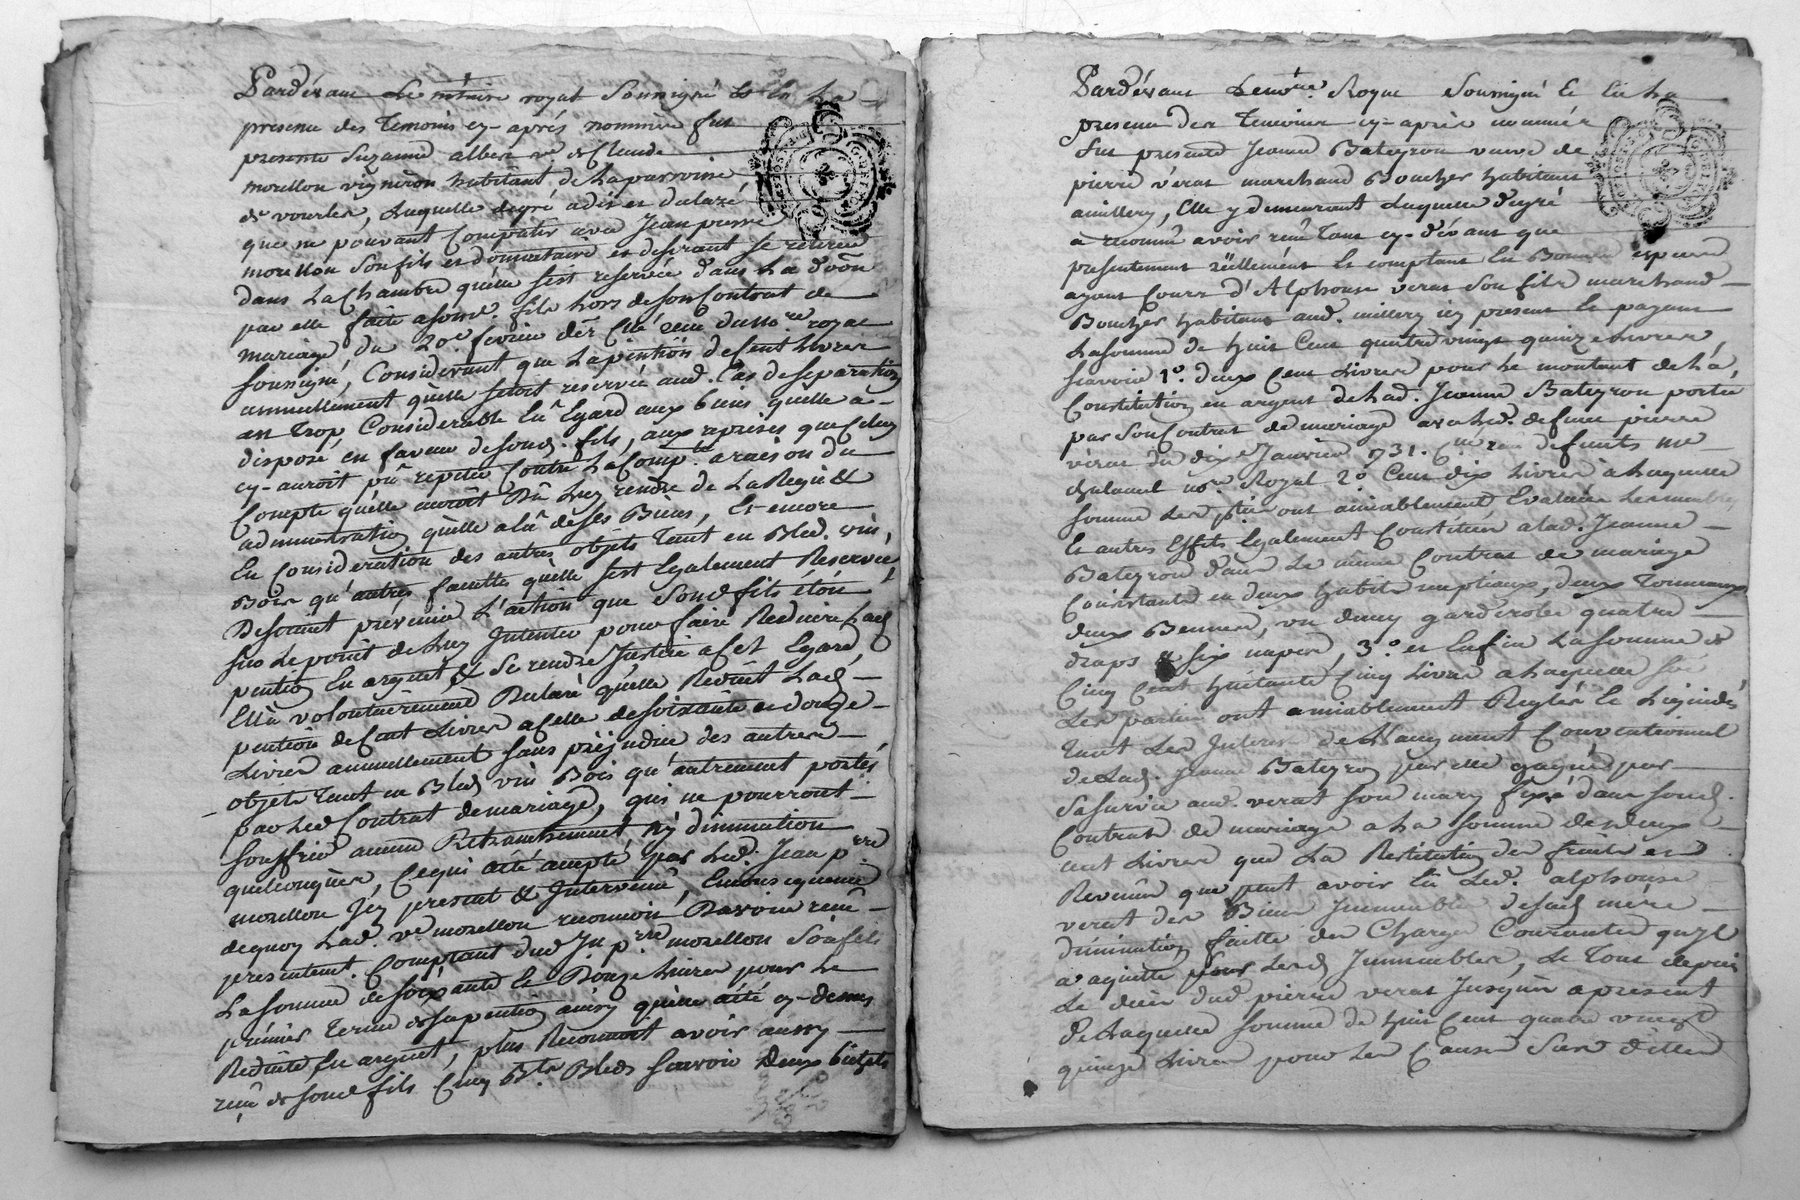 Pardevant Le notaire royal Soussigné Et En La
presence des Temoins cy-aprés nommés fut
presente Suzanne albert ve. de Claude
morellon vigneron habitant de La parroisse
de vourles, Laquelle degré a dit et declaré
que ne pouvant Compatir avec Jean pierre
morellon Son fils et donnataire et desirant se retirer
dans La Chambre qu'elle s'est reservée dans La dõõn
par elle faite a sond. fils Lors de son Contrat de
mariage, du 20e fevrier der. Elle reçu du no.re royal
soussigné, Considerant que La pention de Cent Livres
annuellement qu'elle s'etoit reservée aud. Cas de separation
est Trop Considerable En Egard aux biens qu'elle a
disposé en faveur de sond. fils, aux reprises que Celuy
cy-auroit pû repeter Contre La Comp.te a raison du
Compte qu'elle auroit Dû Luy rendre de La Regie &
administration qu'elle a Eû de ses Biens, Et encore
En Consideration des autres objets Tant en Bled. vin,
Bois qu'autres facultés qu'elle s'est Egalement Reservée,
Desirant prevenir L'action que Sond fils étoit
sur Le point de Luy Intenter pour faire Reduire Lad
pention En argent, & Se rendre Justice a Cet Egard,
Elle volontairement Declaré qu'elle Reduit Lad.
pention de Cent Livres a Celle de soixante et douze
Livres annuellement sans préjudice des autres
objets Tant en Bled, vin Bois qu'autrement portés
par Led Contrat de mariage, qui ne pourront
souffrir aucun Retranchement ny diminution
quelconques, Ce qui a été accepté par Led. Jean p.rre
morellon Icy present & Intervenu, En consequence
de quoy Lad. ve. morellon reconnoit D'avoir reçu
presentement Comptant dud Jn p.rre morellon Son fils
La somme de soixante Et Douze Livres pour Le
premier Terme de sa pention ainsy qu'elle a été cy-dessus
Reduite En argent, plus Reconnoit avoir aussy
reçu de sond fils Cinq Bts. Bled Scavoir Deux bichets
Pardevant Le no.re Royal Soussigné Et En La
presence des Temoins cy-après nommés
fut presente Jeanne Bateyron veuve de
pierre verat marchand Boucher habitant
a millery, Elle y demeurant Laquelle degré
a reconnu avoir reçu Tant cy-devant que
presentement réellement Et comptant En Bonnes especes
ayant Cours d'Alphonse verat Son fils marchand
Boucher habitant aud. millery icy present Et payant
La somme de huit Cent quatre vingt quinze Livres,
scavoir 1°. deux Cent Livres pour Le montant de La
Constitution en argent de Lad. Jeanne Bateyron portée
par Son Contrat de mariage avec Led. defunt pierre
verat du dix Janvier 1731. reçu
no.re Royal 2°. Cent dix Livres a Laquelle
somme Les parties ont amiablement Evalués Les meubles
Et autres Effets Egalement Constitués a lad. Jeanne
Bateyron dans Le même Contrat de mariage
Consistants en deux habits nuptiaux, deux Tonneaux
deux Bennes, un demy garderobe quatre
draps & six napes, 3°. et Enfin La somme de
Cinq Cent huitante Cinq Livres a Laquelle
Les parties ont amiablement Reglés Et Liquidés
Tant Les Interets de L'augment Conventionnel
de Lad. Jeanne Bateyron par elle gagné par
Sa survie aud. verat Son mary fixé dans Sond.
Contrat de mariage a La somme de deux
cent Livres que La Restitution des fruits et
Revenus que peut avoir Eû Led. alphonse
verat des Biens Immeubles de sad. mère
diminution faitte des Charges Courantes qu'il
a aquitté pour Lesd. Immeubles, Le Tout depuis
Le deces dud. pierre verat Jusqu'a present
De Laquelle somme de huit Cent quatre vingt
quinze Livres pour Les Causes Sus dittes